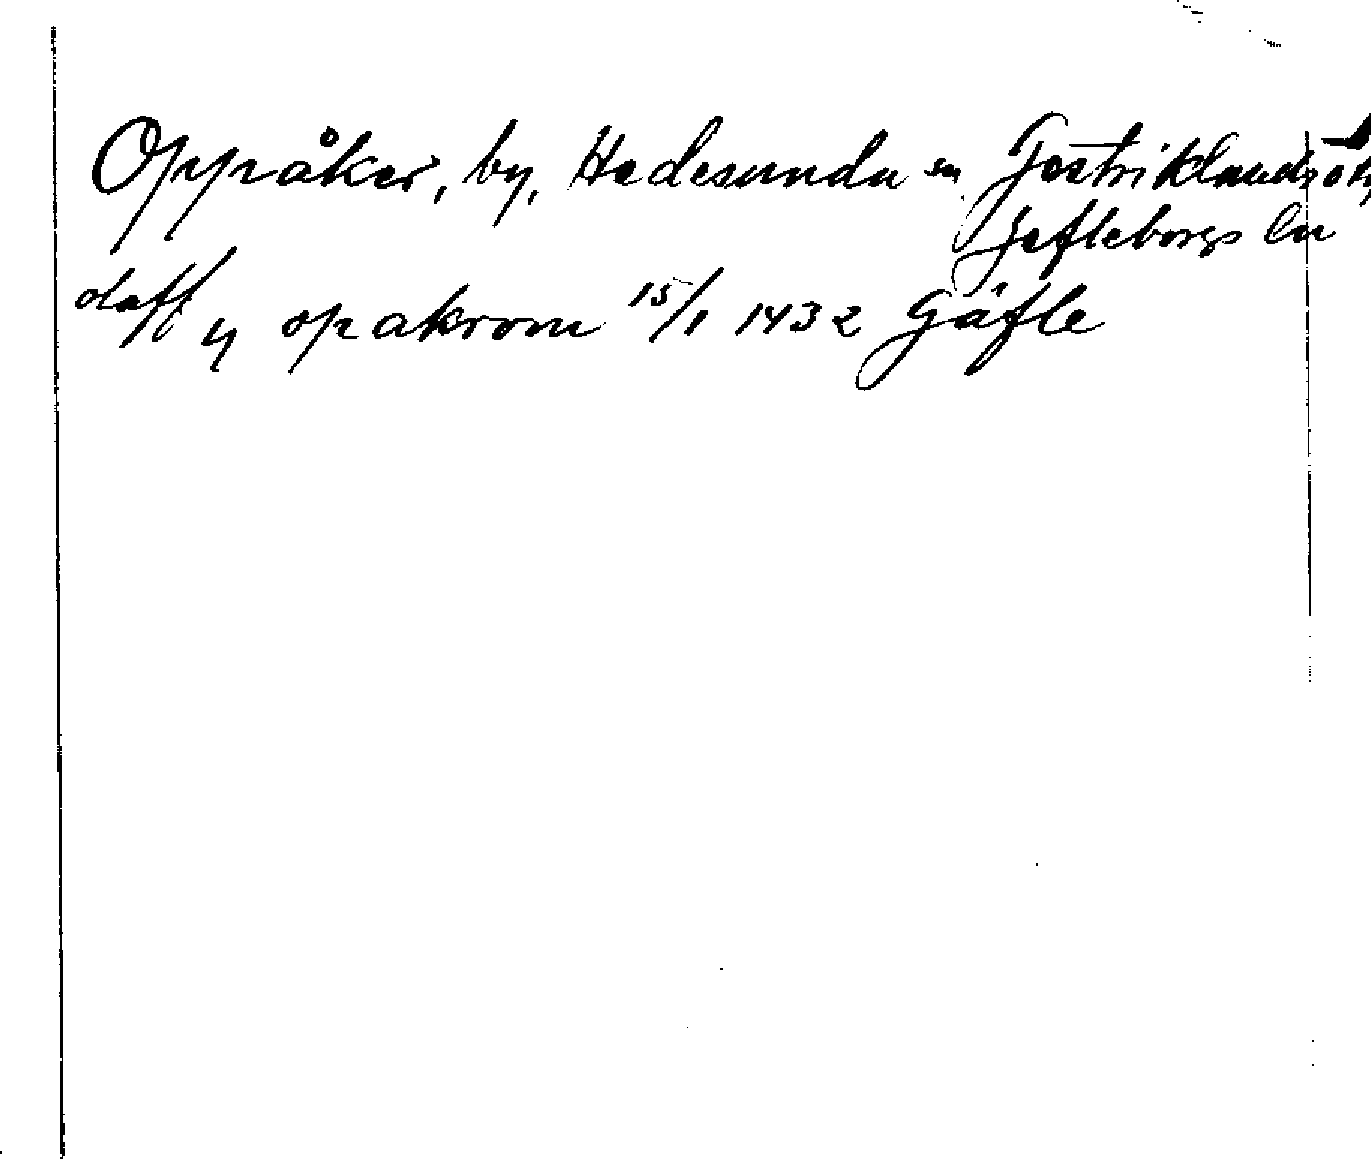 Oppåker, by, Hedesunda sn Gestriklands ö
Gefleborgs län
olaff y opakrom 15/1 1432 Gäfle